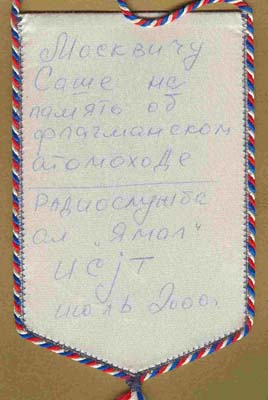 Москвичу
Саше на
память об
флагманском
атомоходе
Радиослужба
ал „Ямал"
июль 2000г.